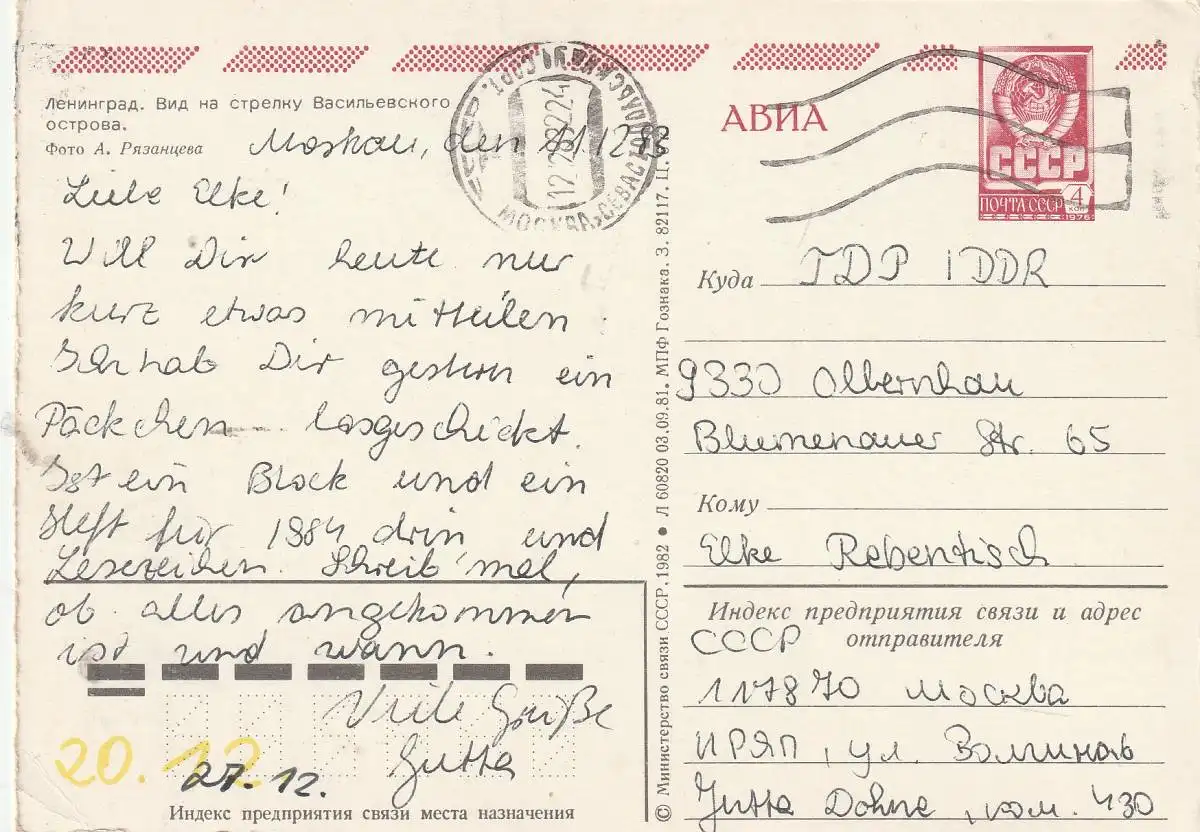 Ленинград. Вид на стрелку Васильевского
острова.
Фото А. Рязанцева
Moskau, den 11.12.83
Liebe Elke!
Will Dir heute nur
kurz etwas mitteilen.
Ich hab Dir gestern ein
Päckchen losgeschickt.
Ist ein Block und ein
Heft für 1984 drin und
Lesezeichen. Schreib' mal,
ob alles angekommen
ist und wann.
Viele Grüße
Jutta
20.12
27.12.
Индекс предприятия связи места назначения
© Министерство связи СССР. 1982 ● Л 60820 03.09.81. МПФ Гознака. З. 82117. Ц.
МОСКВА
АВИА
СССР
ПОЧТА СССР 4 КОП
1976
Куда ГДР / DDR
9330 Olbernhau
Blumenauer Str. 65
Кому
Elke Rebentisch
Индекс предприятия связи и адрес
отправителя
СССР
117870 Москва
ИРЯП, ул.
Jutta Dohne, ком. 430